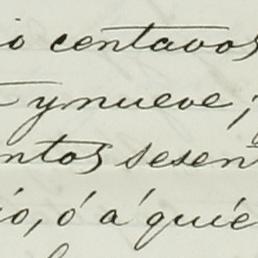 io centavos
y nueve;
ntos sesen
io, ó á quie